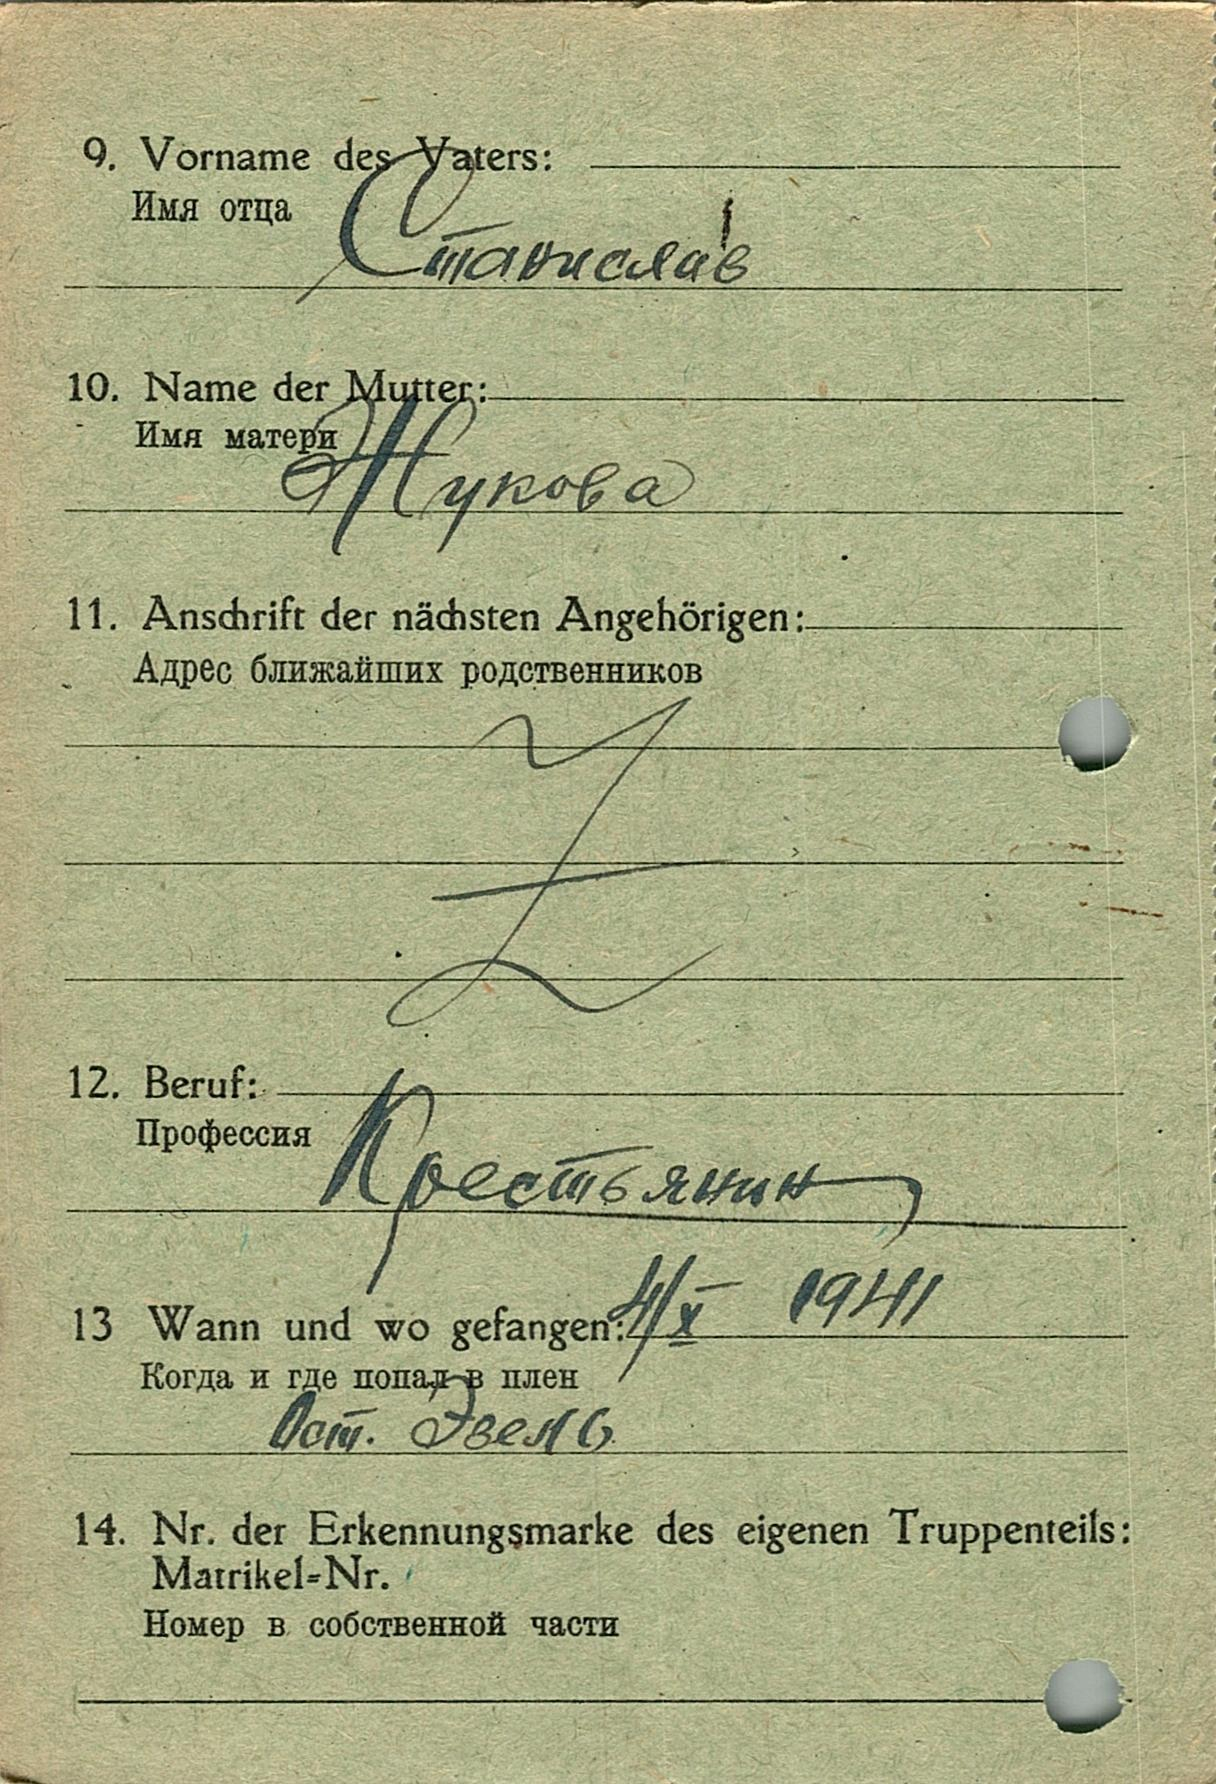 9. Vorname des Vaters:
Имя отца
Станислав
10. Name der Mutter:
Имя матери
Жукова
11. Anschrift der nächsten Angehörigen:
Адрес ближайших родственников
12. Beruf:
Профессия
Крестьянин
13 Wann und wo gefangen: 4/X 1941
Когда и где попал в плен
Ост. Эзель
14. Nr. der Erkennungsmarke des eigenen Truppenteils:
Matrikel=Nr.
Номер в собственной части